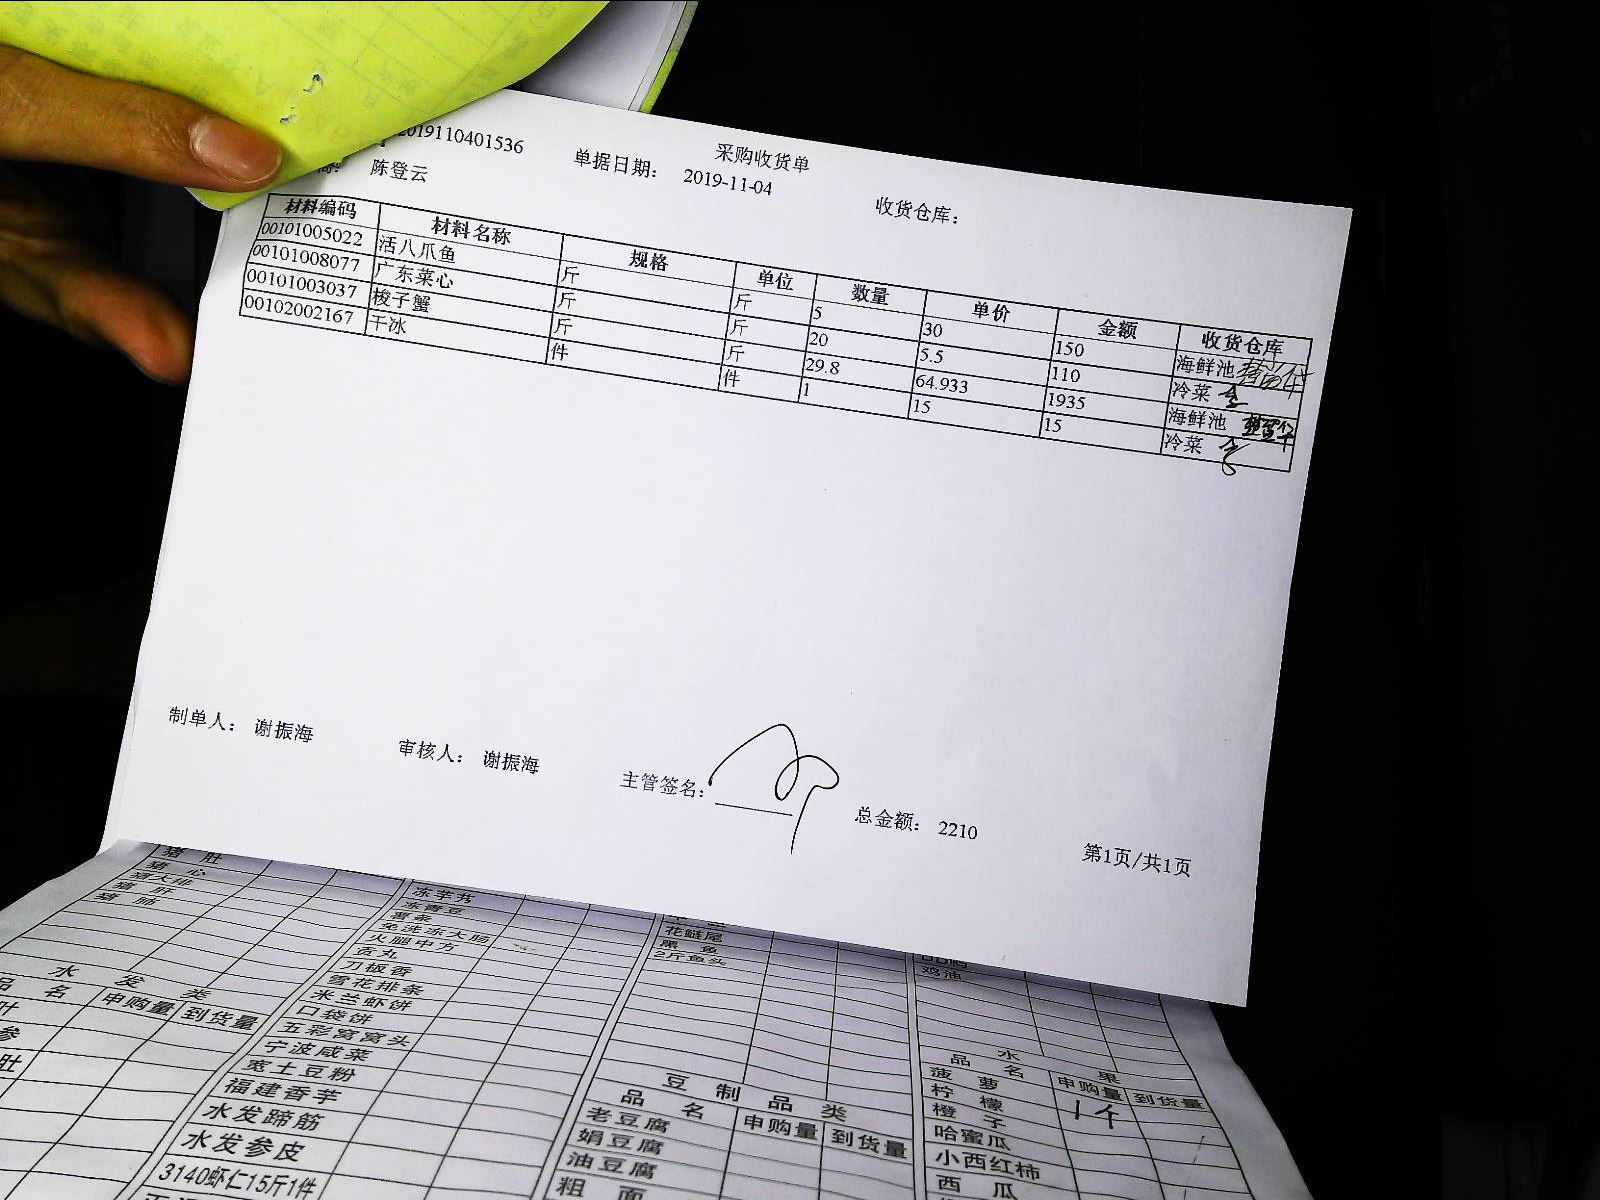 采购收货单
2019110401536 单据日期： 2019-11-04 收货仓库：
陈登云
材料编码 材料名称 规格 单位 数量 单价 金额 收货仓库
00101005022 活八爪鱼 斤 斤 5 30 150 海鲜池
00101008077 广东菜心 斤 斤 20 5.5 110 冷菜
00101003037 梭子蟹 斤 斤 29.8 64.933 1935 海鲜池
00102002167 干冰 件 件 1 15 15 冷菜
制单人： 谢振海 审核人： 谢振海 主管签名： 总金额： 2210 第1页/共1页
猪 肚
猪 心
猪大排
猪 肝
猪 肺
水 发 类
品 名 申购量 到货量
叶
参
肚
冻芋艿
冻青豆
薯条
免洗冻大肠
火腿中方
贡丸
刀板香
雪花排条
米兰虾饼
口袋饼
五彩窝窝头
宁波咸菜
宽土豆粉
福建香芋
水发蹄筋
水发参皮
3140虾仁15斤1件
花鲢尾
黑 鱼
2斤鱼头
豆 制 品 类
品 名 申购量 到货量
老豆腐
娟豆腐
油豆腐
粗 面
鸡油
水 果
品 名 申购量 到货量
菠 萝
柠 檬 1个
橙 子
哈蜜瓜
小西红柿
西 瓜